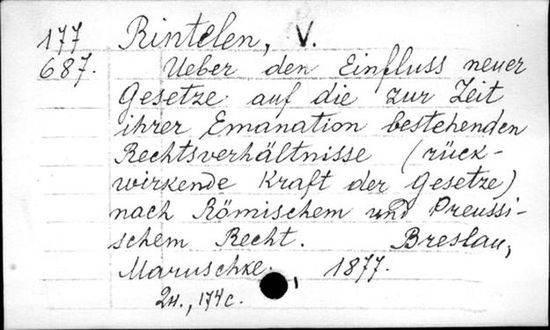 177 Rintelen, V.
687. Ueber den Einfluss neuer
Gesetze auf die zur Zeit
ihrer Emanation bestehenden
Rechtsverhältnisse (rück-
wirkende Kraft der Gesetze)
nach Römischem und Preussi-
schem Recht. Breslau,
Maruschke. 1877.
2н., 174 с.